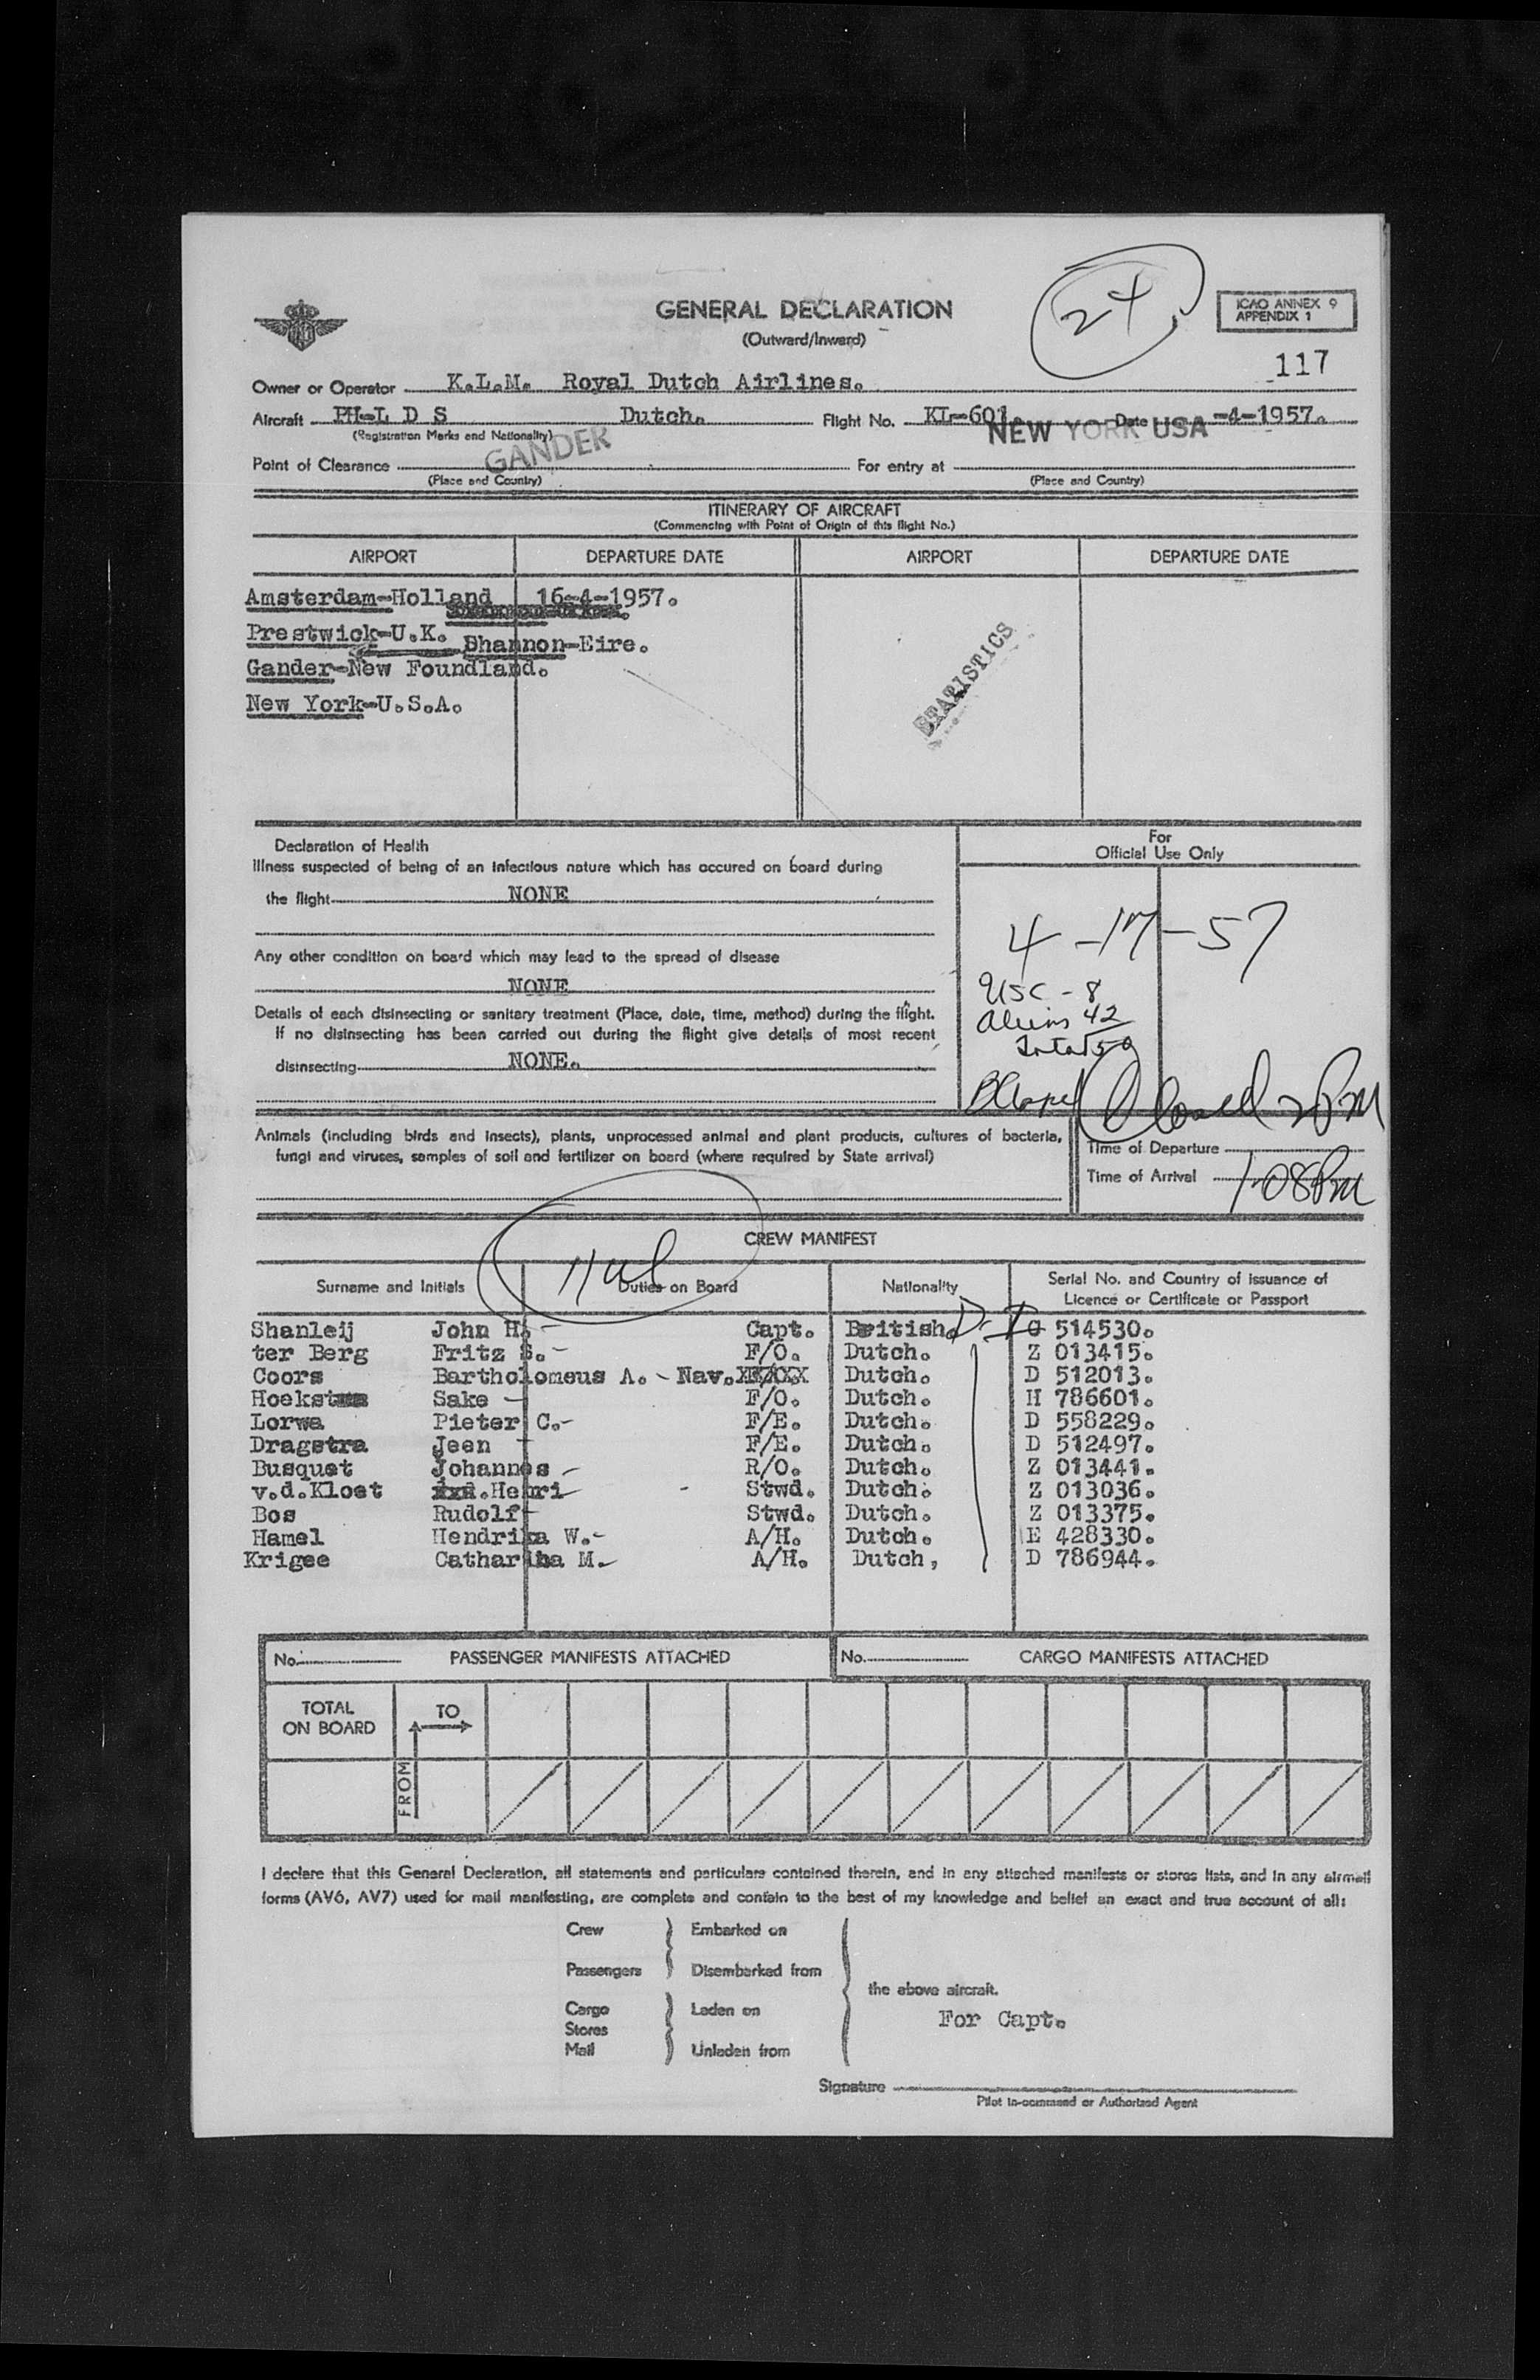 GENERAL DECLARATION
(Outward/Inward)
24
ICAO ANNEX 9
APPENDIX 1
117
Owner or Operator K.L.M. Royal Dutch Airlines.
Aircraft PH-L D S Dutch. Flight No. KL-601. Date -4-1957.
(Registration Marks and Nationality)
GANDER
NEW YORK USA
Point of Clearance For entry at
(Place and Country) (Place and Country)
ITINERARY OF AIRCRAFT
(Commencing with Point of Origin of this flight No.)
AIRPORT DEPARTURE DATE AIRPORT DEPARTURE DATE
Amsterdam-Holland 16-4-1957.
Prestwick-U.K. Shannon-Eire.
Gander-New Foundland.
New York-U.S.A.
STATISTICS
Declaration of Health
Illness suspected of being of an infectious nature which has occured on board during
the flight NONE
Any other condition on board which may lead to the spread of disease
NONE
Details of each disinsecting or sanitary treatment (Place, date, time, method) during the flight.
If no disinsecting has been carried out during the flight give details of most recent
disinsecting NONE.
For
Official Use Only
4-17-57
USC - 8
Aliens 42
Total 50
Closed 2PM
Animals (including birds and insects), plants, unprocessed animal and plant products, cultures of bacteria,
fungi and viruses, samples of soil and fertilizer on board (where required by State arrival)
Time of Departure
Time of Arrival 1-08PM
CREW MANIFEST
Surname and Initials Duties on Board Nationality Serial No. and Country of issuance of
Licence or Certificate or Passport
Shanleij John H. - Capt. British. D-1 O 514530.
ter Berg Fritz S. - F/O. Dutch. Z 013415.
Coors Bartholomeus A. - Nav. Dutch. D 512013.
Hoekstra Sake - F/O. Dutch. H 786601.
Lorwa Pieter C.- F/E. Dutch. D 558229.
Dragstra Jeen - F/E. Dutch. D 512497.
Busquet Johannes - R/O. Dutch. Z 013441.
v.d.Kloet Henri - Stwd. Dutch. Z 013036.
Bos Rudolf - Stwd. Dutch. Z 013375.
Hamel Hendrika W.- A/H. Dutch. E 428330.
Krigee Catharina M.- A/H. Dutch, D 786944.
No. PASSENGER MANIFESTS ATTACHED No. CARGO MANIFESTS ATTACHED
TOTAL
ON BOARD
TO
FROM
I declare that this General Declaration, all statements and particulars contained therein, and in any attached manifests or stores lists, and in any airmail
forms (AV6, AV7) used for mail manifesting, are complete and contain to the best of my knowledge and belief an exact and true account of all:
Crew Embarked on
Passengers Disembarked from
the above aircraft.
Cargo Laden on
Stores
Mail Unladen from
For Capt.
Signature
Pilot in-command or Authorized Agent